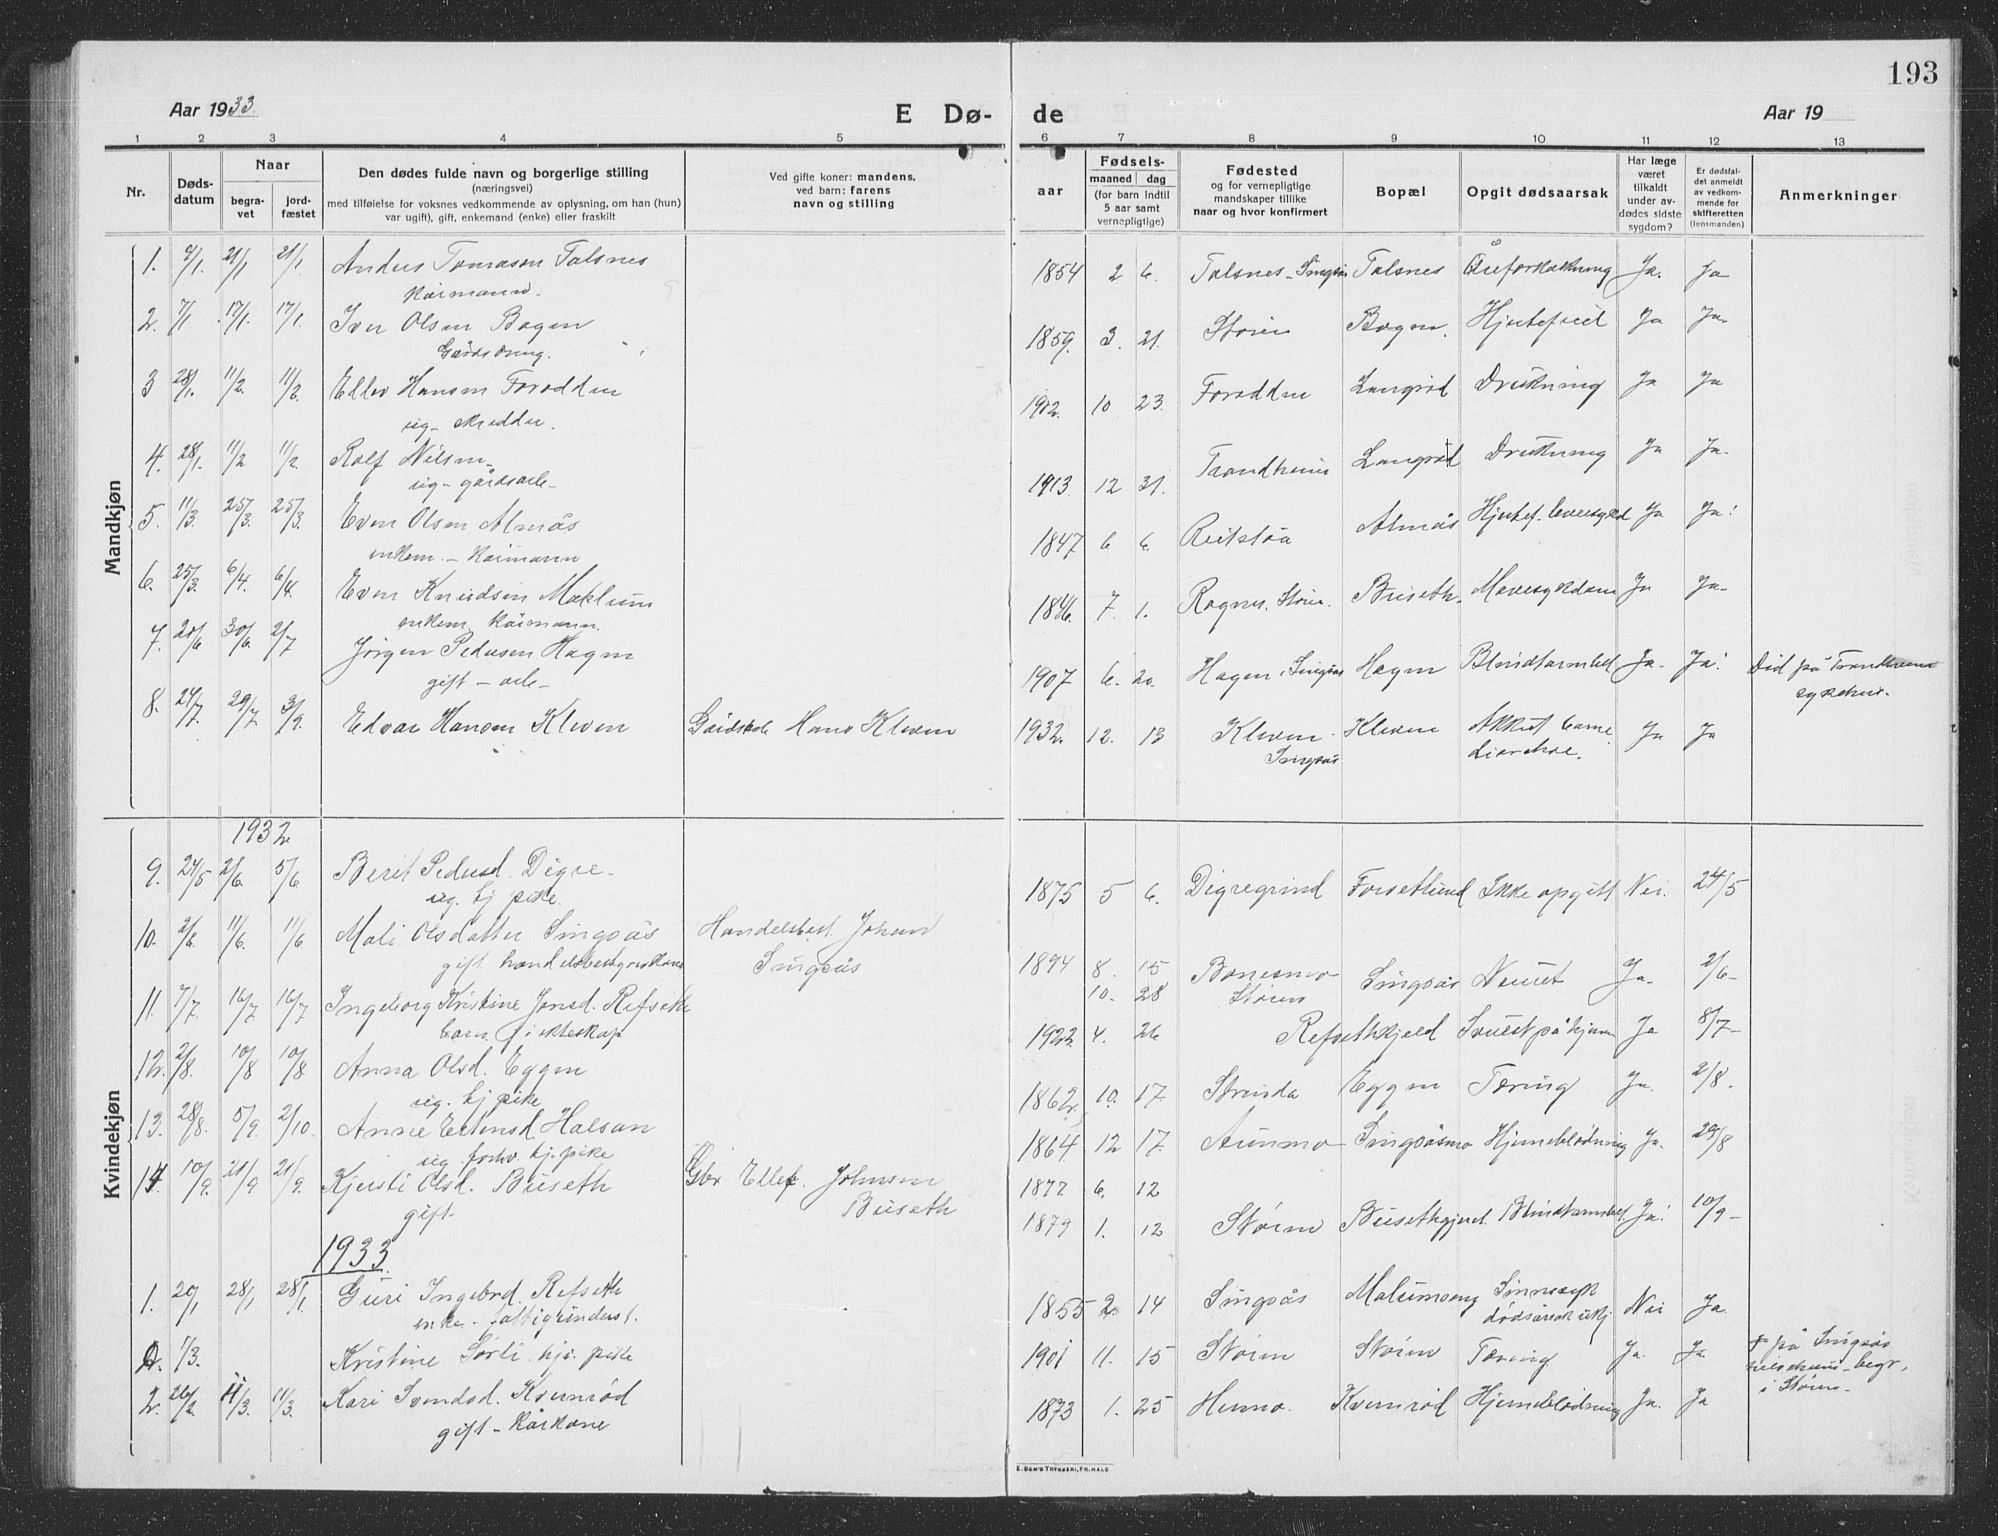 193
Aar 1933.
E Dø-
de
Aar 19
1 2 3 4 5 6 7 8 9 10 11 12 13
Nr.
Døds-
datum
Naar
begra-
vet
jord-
fæstet
Den dødes fulde navn og borgerlige stilling
(næringsvei)
med tilføielse for voksnes vedkommende av oplysning, om han (hun)
var ugift), gift, enkemand (enke) eller fraskilt
Ved gifte koner: mandens,
ved barn: farens
navn og stilling
aar
Fødsels-
maaned dag
(for barn indtil
5 aar samt
vernepligtige)
Fødested
og for vernepligtige
mandskaper tillike
naar og hvor konfirmert
Bopæl
Opgit dødsaarsak
Har læge
været
tilkaldt
under av-
dødes sidste
sygdom?
Er dødsfal-
det anmeldt
av vedkom-
mende for
skifteretten
(lensmanden)
Anmerkninger
Mandkjøn
1. 21/1 21/1 Anders Tomasen Talsnes 1854 2 6. Talsnes - Singsås Talsnes Åreforkalkning Ja. Ja
Kårmann -
2. 7/1 17/1. 17/1. Iver Olsen Bogen 1859. 3. 21. Støren Bogen. Hjertefeil Ja Ja.
Gårdbrug.
3 28/1. 11/2. 11/2. Ellev Hansen Forodden 1912. 10 23. Forodden Langrød Drukning Ja Ja
ug - skredder.
4. 28/1- 11/2 11/2. Rolf Nilsen - 1913. 12 31. Trondheim Langrød Drukning Ja Ja.
ug - gårdsarb -
5. 11/3. 25/3. 25/3. Even Olsen Almås 1847 6 6. Reitstøa Almås Ja Ja!
enkem. - Kårmann
6. 25/3. 6/4. 6/4. Even Knudsen Moklum 1846. 7. 1. Rognes, Støren. Buseth. Mavesykdom Ja Ja-
enkem. Kårmann.
7. 20/6 30/6. 2/7 Jørgen Pedersen Hagen 1907 6. 20. Hagen, Singsås Hagen Blindtarmbet Ja- Ja! Død på Trondheim
gift - arb - sykehus.
8. 24/7. 29/7. 3/9. Edvar Hansen Kleven Gårdsarb Hans Kleven 1932. 12. 13 Kleven. Kleven Akkut barne Ja Ja
Singsås diarehoe.
Kvindekjøn
1932
9. 24/5 2/6. 5/6. Berit Pedersd. Digre - 1875 5 6. Digregrind Forsetlund Ikke opgitt Nei. 24/5
ug. tj pike.
10. 2/6. 11/6. 11/6 Mali Olsdatter Singsås Handelsbest. Johan 1894 8. 15 Bonesmo Singsås Ja. 2/6-
gift. handelsbestyrerkone Singsås 10. 28 Støren
11. 7/7. 16/7 16/7 Ingeborg Kristine Jonsd. Refseth 1922. 4. 26 Refsethkjeld Ja 8/7-
barn f i ekteskap
12. 2/8. 10/8 10/8 Anna Olsd. Eggen 1862. 10. 17 Strinda Eggen Tæring Ja. 2/8.
ug. tj pike
13. 28/8. 5/9. 2/10. Anne Halsan 1864. 12 17. Aunmo - Singsåsmo Hjerneblødning Ja. 29/8
ug forhv. tj. pike
14 10/9. 21/9 21/9. Kjersti Olsd. Buseth Gbr Ellef. Johnsen 1877 6. 12
gift. Buseth 1879 1. 12 Støren Busethgjerd. Blindtarmbet Ja! 10/9-
1933.
1. 20/1 28/1 28/1 Guri Ingebrd. Refseth 1855 2. 14 Singsås Sinnssyk Nei Ja.
enke - fattigunderst. dødsårsak ukj
2. 1/3. Kristine Sørli. pike 1901 11. 15 Støren Støren Tæring Ja. Ja på Singsås
begr.
2. 26/2 11/3. 11/3. Kari Svendsd. Kvernrød 1873 1. 25 Hermo. Kvernrød Hjerneblødning Ja. Ja i Støren -
gift - Kårkone
E. SEM'S TRYKKERI, FR. HALD